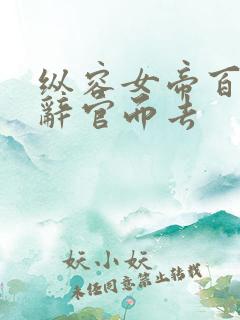 纵容女帝百
辞官而去
妖小妖
未经同意禁止转载